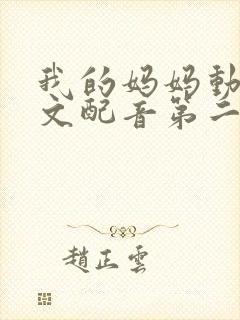 我的妈妈動
文配音第二
趙正雲